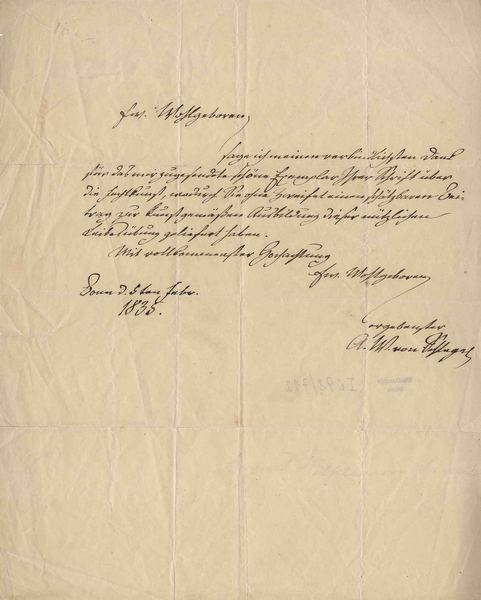 Ew. Wohlgeboren
sage ich meinen verbindlichsten Dank
für das mir zugesendete schöne Exemplar Ihrer Schrift über
die Fechtkunst, wodurch Sie ohne Zweifel einen schätzbaren Bei-
trag zur kunstgemäßen Ausbildung dieser nützlichen
Leibesübung geliefert haben.
Mit vollkommenster Hochachtung
Ew. Wohlgeboren
Bonn d. 5ten Febr.
1835.
ergebenster
A. W. von Schlegel